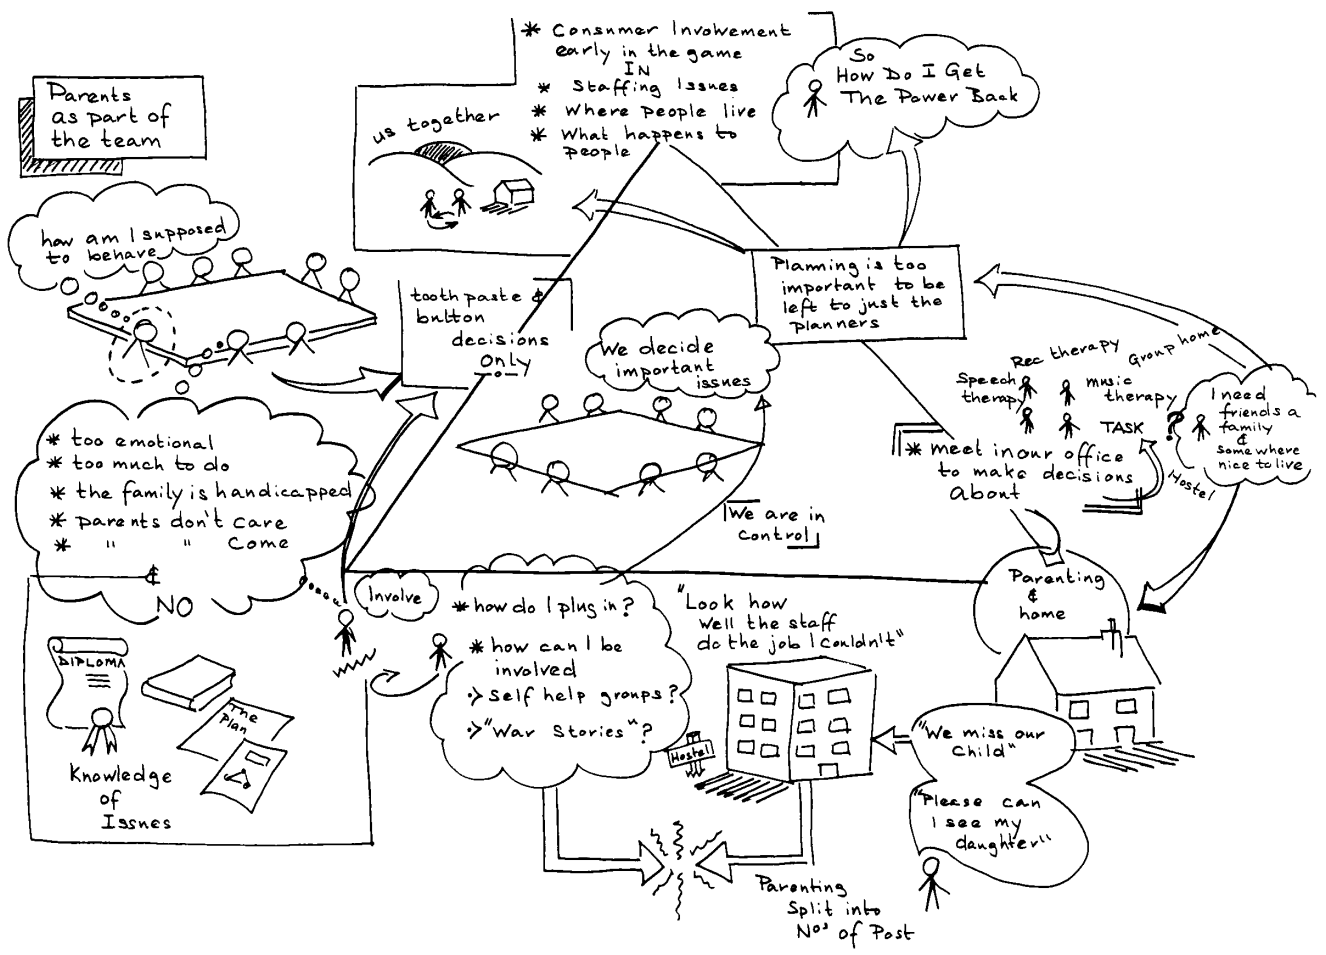 Parents
as part of
the team
* Consumer Involvement
early in the game
IN
* Staffing Issues
* Where people live
* What happens to
people
So
How Do I Get
The Power Back
us together
how am I supposed
to behave
Planning is too
important to be
left to just the
planners
tooth paste &
button
decisions
only
We decide
important
issues
Rec therapy
Group home
Speech
therapy
music
therapy
TASK
?
Hostel
I need
friends a
family
&
some where
nice to live
* meet in our office
to make decisions
about
* too emotional
* too much to do
* the family is handicapped
* parents don't care
* " " come
&
NO
We are in
control
DIPLOMA
The
Plan
Knowledge
of
Issues
Involve
* how do I plug in?
* how can I be
involved
Self help groups?
"War Stories"?
"Look how
well the staff
do the job I couldn't"
Hostel
Parenting
&
home
"We miss our
Child"
"Please can
I see my
daughter"
Parenting
Split into
Nos of Post